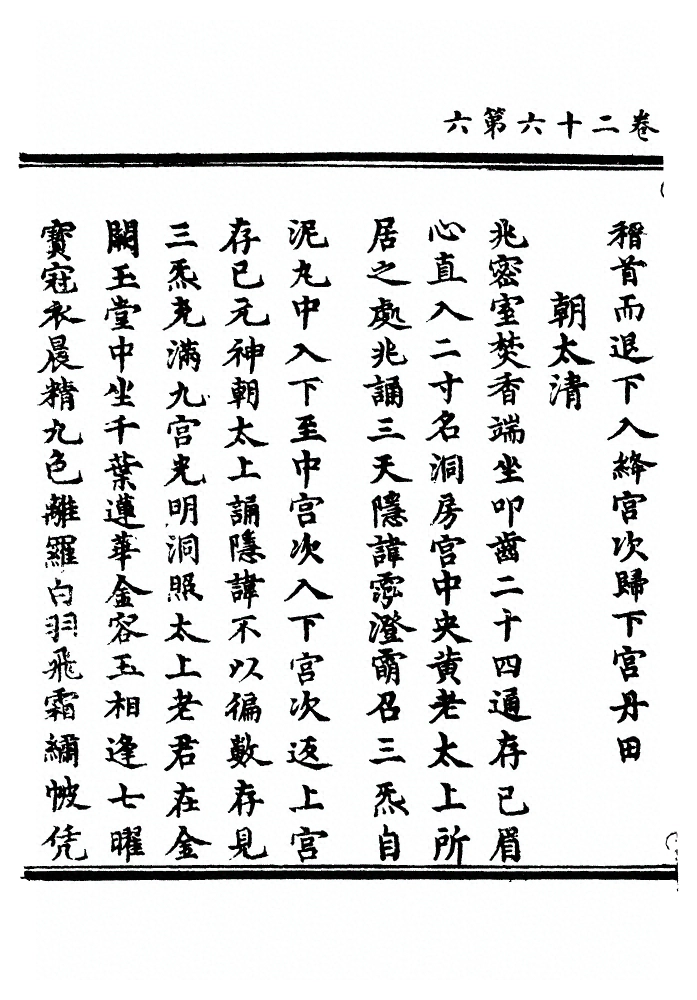 卷二十六第六
稽首而退下入絳宮次歸下宮丹田
朝太清
兆密室焚香端坐叩齒二十四通存已眉
心直入二寸名洞房宮中央黄老太上所
居之處兆誦三天隱諱澄召三炁自
泥丸中入下至中宮次入下宮次返上宮
存已元神朝太上誦隱諱不以徧數存見
三炁充滿九宮光明洞照太上老君在金
闕玉堂中坐千葉蓮華金容玉相逢七曜
寶冠衣晨精九色離羅白羽飛霜繡帔凭